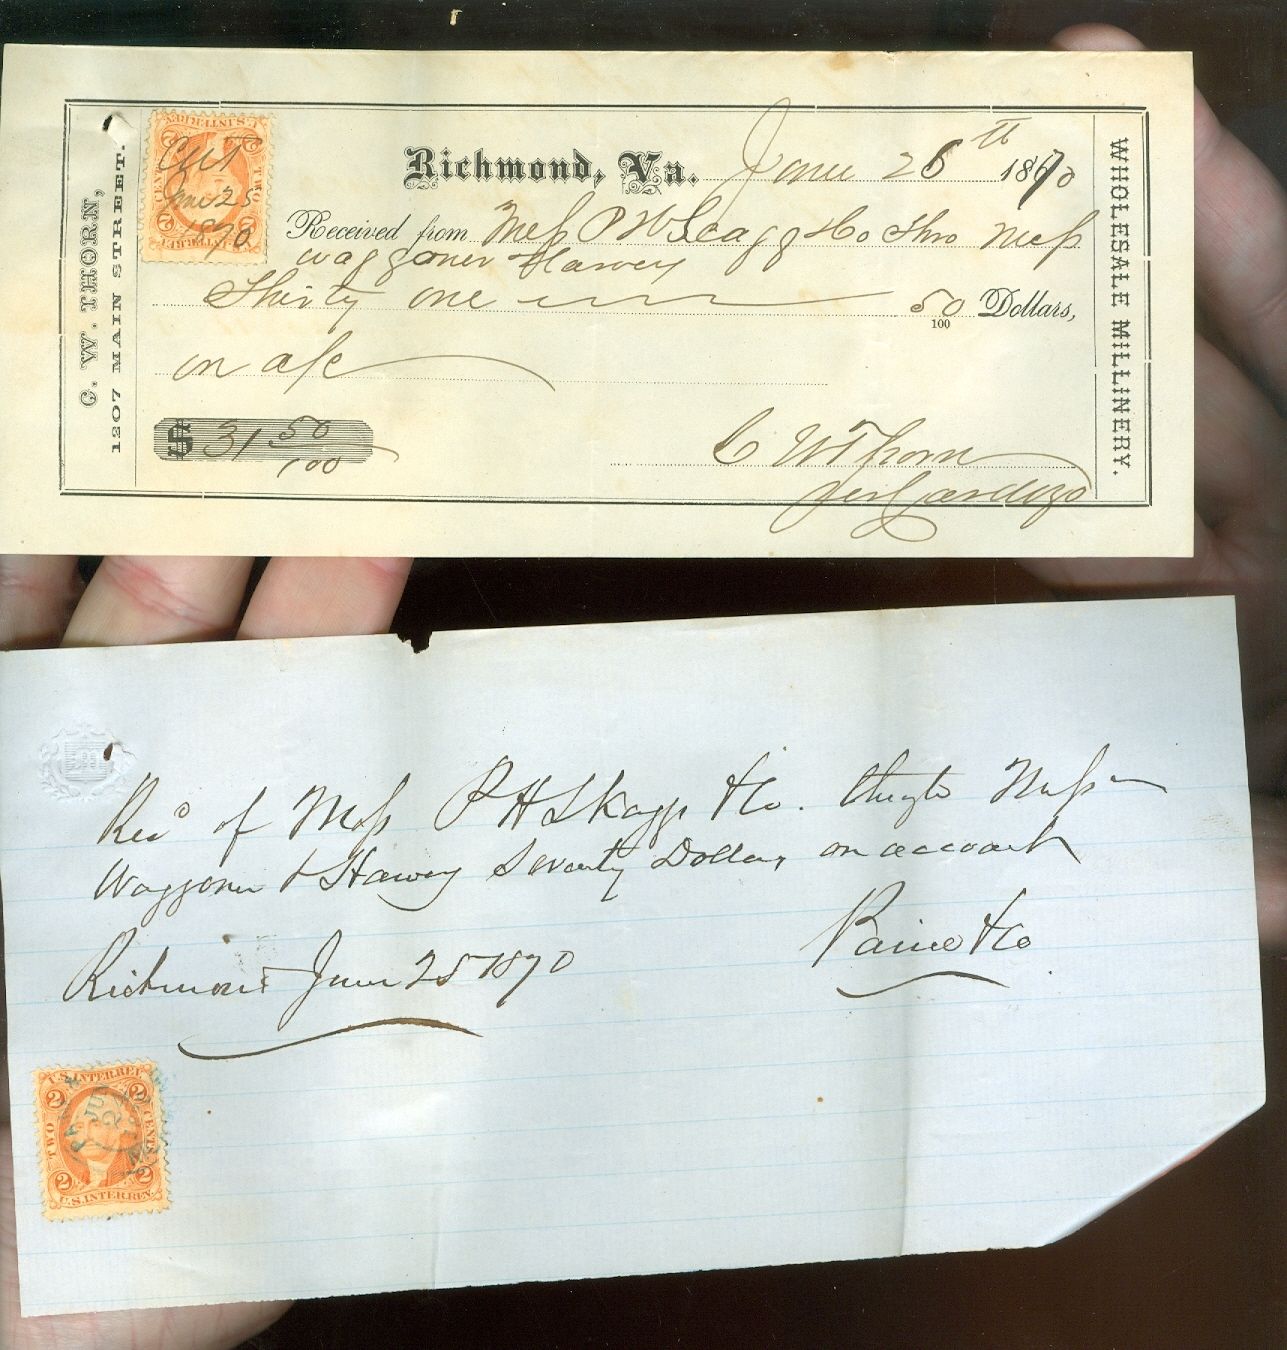 C. W. THORN,
1207 MAIN STREET.
WHOLESALE MILLINERY.
U.S. INTER.REV.
2 2
TWO CENTS
2 2
U.S. INTER.REV.
CWT
June 25
1870
Richmond, Va. June 25th 1870
Received from Mess P H Scaggs & Co Thro Mess
Waggoner & Harvey
Thirty one 50/100 Dollars,
on a/c
$ 31 50/100
C W Thorn
per Cardozo
Recd of Mess P H Skaggs & Co. through Mess
Waggoner & Harvey Seventy Dollars on account
Richmond June 25 1870
Paine & Co
U.S. INTER.REV.
2 2
TWO CENTS
2 2
U.S. INTER.REV.